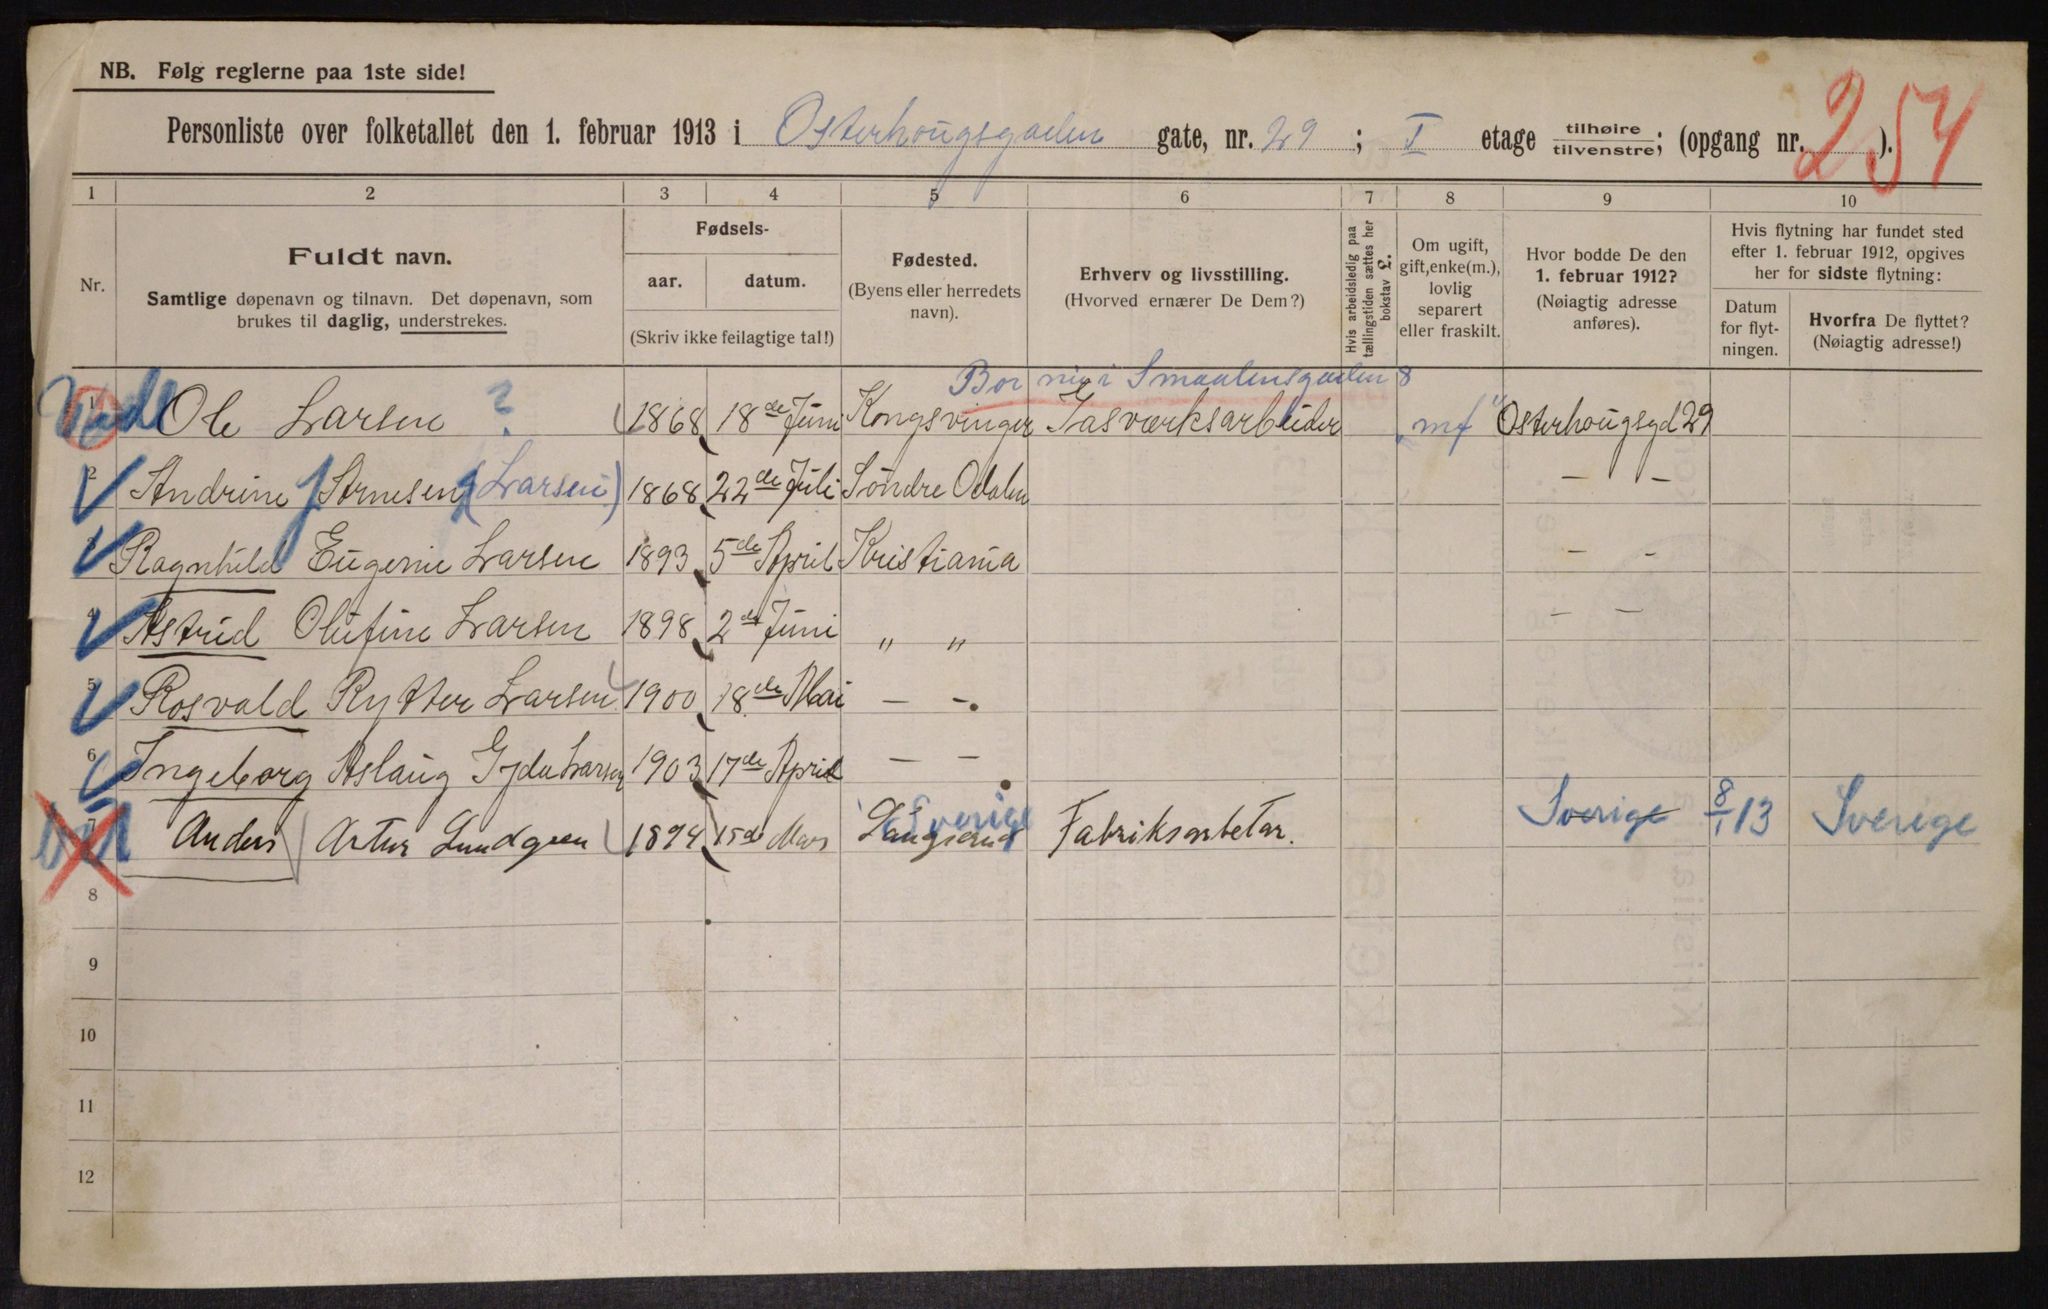 NB. Følg reglerne paa 1ste side!
Personliste over folketallet den 1. februar 1913 i Osterhougsgaden gate, nr. 29 ; I etage tilhøire / tilvenstre ; (opgang nr. ).
254
1 2 3 4 5 6 7 8 9 10
Nr.
Fuldt navn.
Samtlige døpenavn og tilnavn. Det døpenavn, som
brukes til daglig, understrekes.
Fødsels-
aar. datum.
(Skriv ikke feilagtige tal!)
Fødested.
(Byens eller herredets
navn).
Erhverv og livsstilling.
(Hvorved ernærer De Dem?)
Hvis arbeidsledig paa
tællingstiden sættes her
bokstav £.
Om ugift,
gift, enke(m.),
lovlig
separert
eller fraskilt.
Hvor bodde De den
1. februar 1912?
(Nøiagtig adresse
anføres).
Hvis flytning har fundet sted
efter 1. februar 1912, opgives
her for sidste flytning:
Datum
for flyt-
ningen.
Hvorfra De flyttet?
(Nøiagtig adresse!)
Bor nu i Smaalensgaden 8
1 Ole Larsen ? 1868 18de Juni Kongsvinger Gasværksarbeider "mf" Osterhougsgd 29
2 Andrine Arnesen (Larsen) 1868 22de Juli Søndre Odalen — —
3 Ragnhild Eugenie Larsen 1893 5de April Kristiania — —
4 Astrid Olufine Larsen 1898 2de Juni " " — —
5 Rosvald Rytter Larsen 1900 18de Mai — —
6 Ingeborg Aslaug Gyda Larsen 1903 17de April — —
7 Anders Artur Lundgren 1894 15de Mars Sverige Fabriksarbetar. Sverige 8/1 13 Sverige
8
9
10
11
12